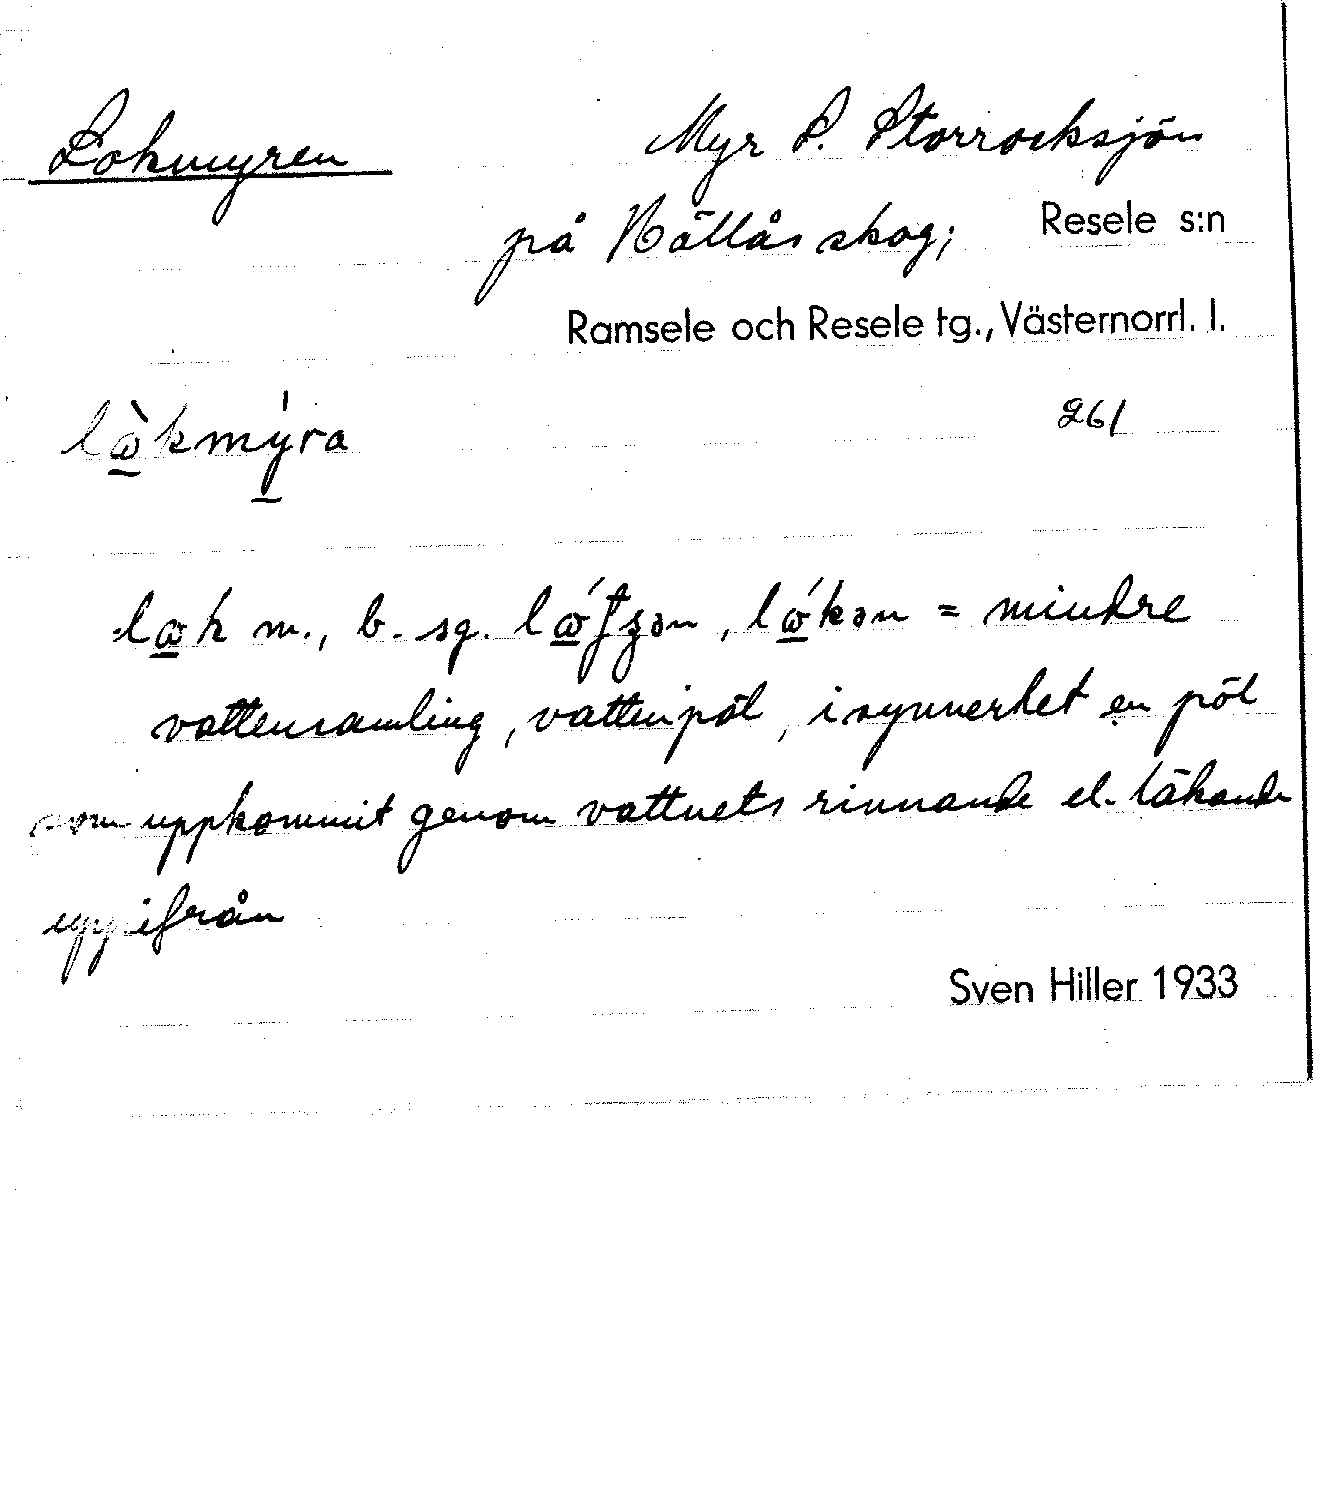 Lokmyren
Myr S. Storrocksjön
på Höllås skog; Resele s:n
Ramsele och Resele tg., Västernorrl. l.
261
vattensamling, vattenpöl, i synnerhet en pöl
som uppkommit genom vattnets rinnande el. läkande
uppifrån
Sven Hiller 1933